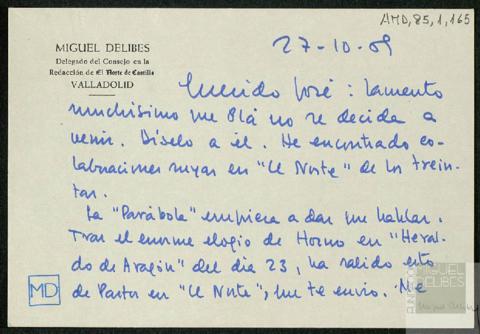 AMD,85,1,165
MIGUEL DELIBES
Delegado del Consejo en la
Redacción de El Norte de Castilla
VALLADOLID
27-10-69
Querido José: Lamento
muchísimo que Plá no se decida a
venir. Díselo a él. He encontrado co-
laboraciones suyas en "El Norte" de los trein-
tas.
La "Parábola" empieza a dar que hablar.
Tras el enorme elogio de Horno en "Heral-
do de Aragón" del día 23, ha salido esto
de Pastor en "El Norte", que te envío. Me
MD
FUNDACIÓN
MIGUEL
DELIBES